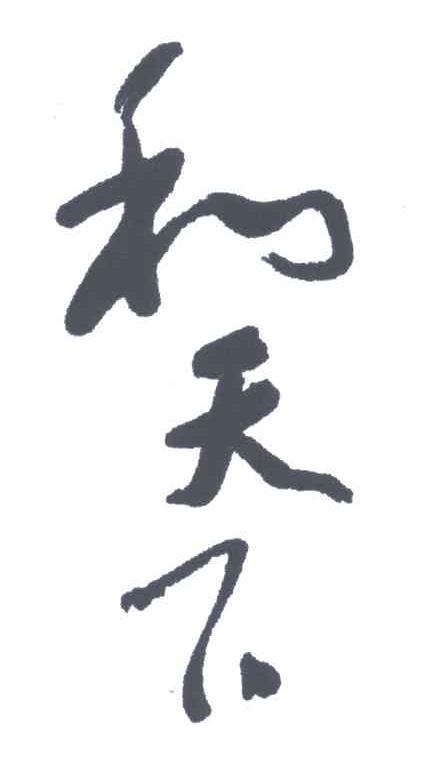 和天下